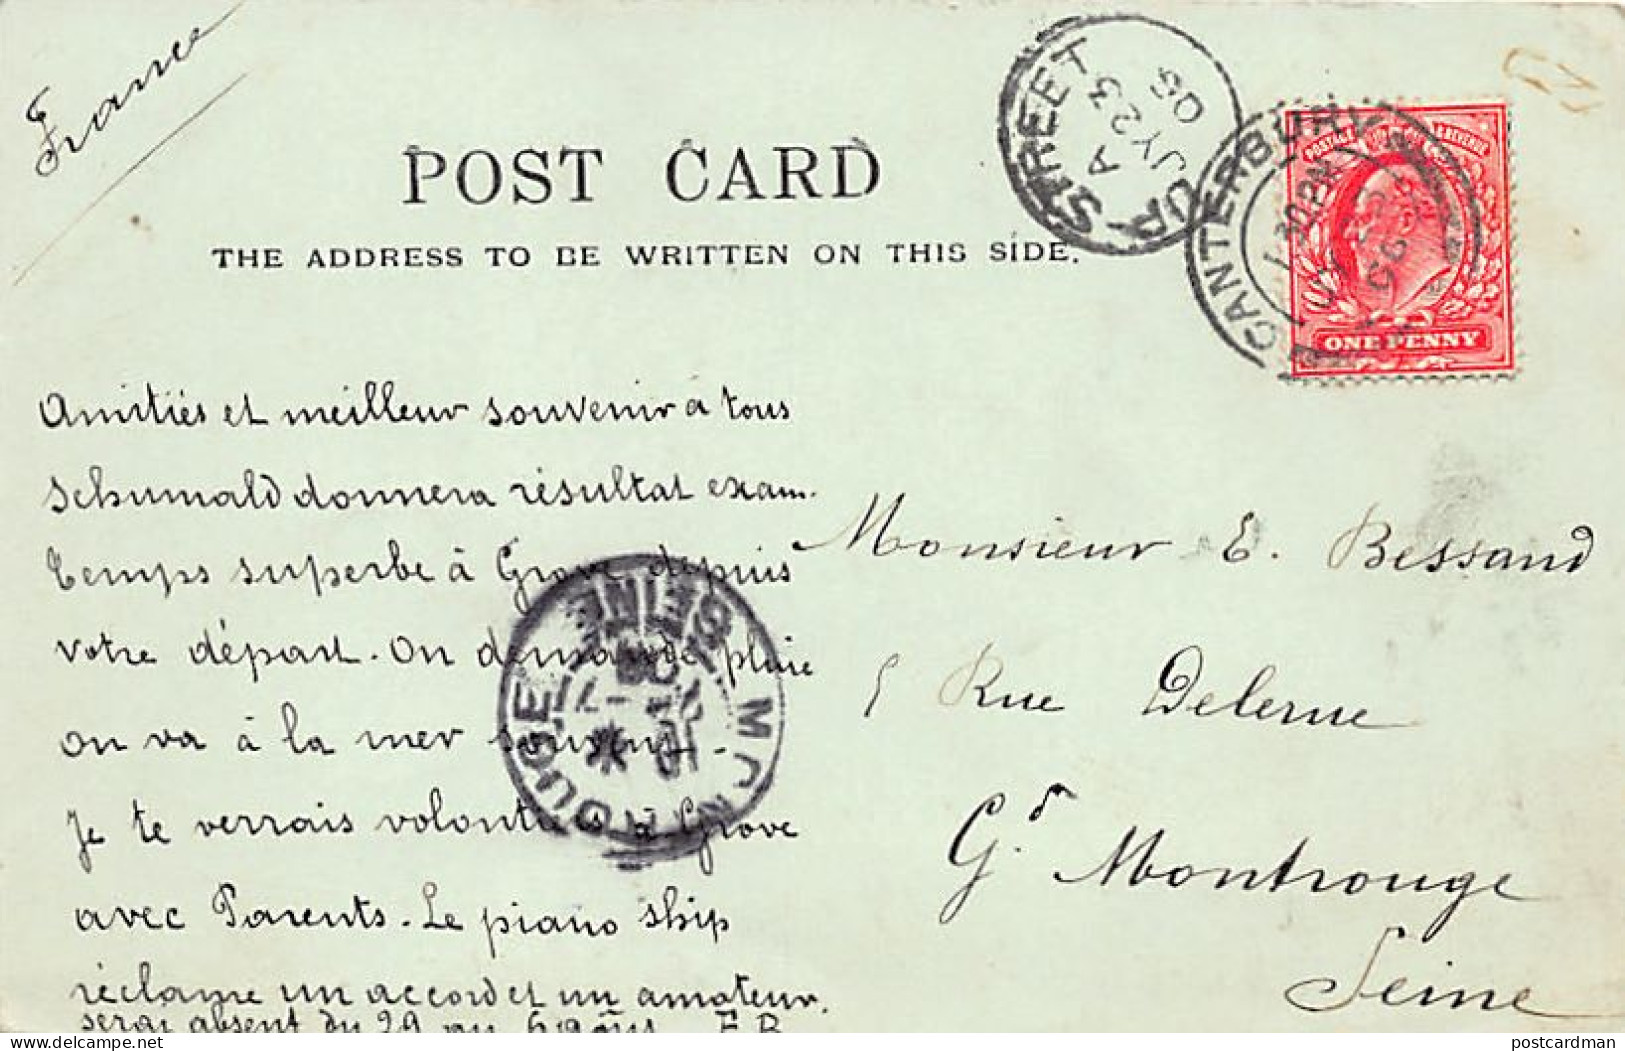 France
POST CARD
THE ADDRESS TO BE WRITTEN ON THIS SIDE.
STUR STREET
A
JY 23
05
CANTERBURY
1 30 PM
JY
05
POSTAGE & REVENUE
ONE PENNY
Amitiés et meilleur souvenir à tous
Schumald donnera résultat exam.
Temps superbe à Grove depuis
votre départ. On demande pluie
on va à la mer souvent.
Je te verrais volontiers à Grove
avec Parents. Le piano ship
réclame un accord et un amateur.
serai absent du 29 au 6 août E.B.
Monsieur E. Bessand
5 Rue Delerue
Gd. Montrouge
Seine
MONTROUGE
SEINE
postcardman